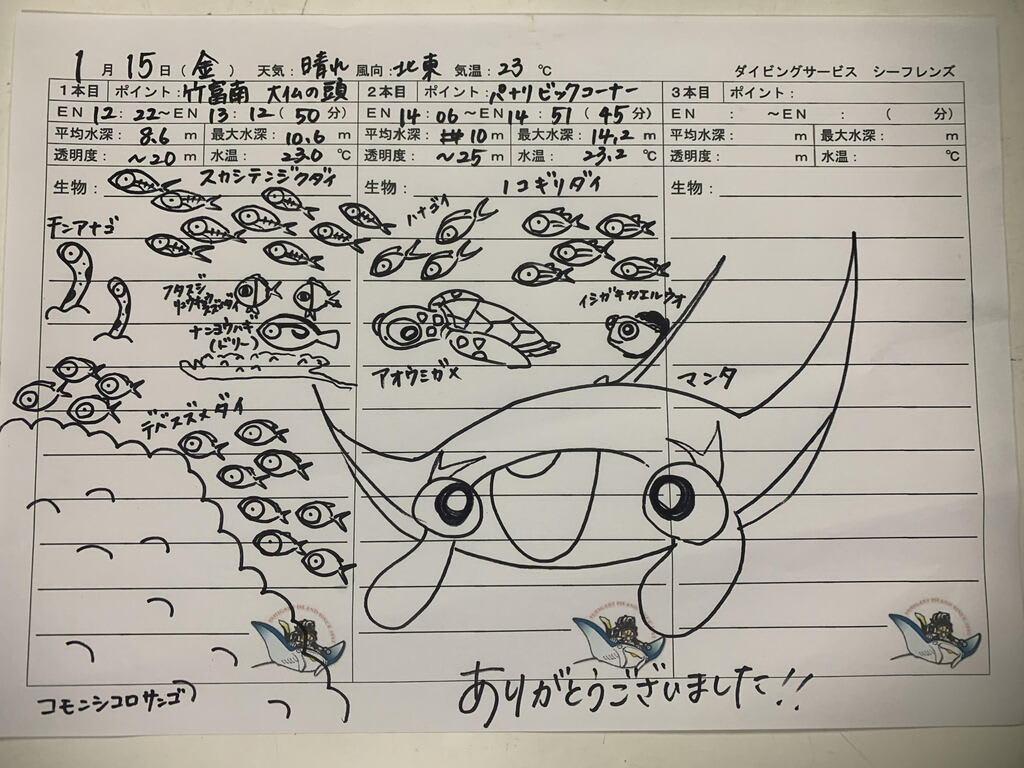 1月15日（金） 天気：晴れ 風向：北東 気温：23℃
ダイビングサービス シーフレンズ
1本目 ポイント：竹富南 大仏の頭
EN 12：22～EN 13：12（50分）
平均水深：8.6m 最大水深：10.6m
透明度：～20m 水温：23.0℃
生物：
スカシテンジクダイ
チンアナゴ
フタスジ
リュウキュウスズメダイ
ナンヨウハギ
（ドリー）
デバスズメダイ
コモンシコロサンゴ
2本目 ポイント：パナリビックコーナー
EN 14：06～EN 14：51（45分）
平均水深：10m 最大水深：14.2m
透明度：～25m 水温：23.2℃
生物：
ノコギリダイ
ハナゴイ
イシガキカエルウオ
アオウミガメ
マンタ
3本目 ポイント：
EN ： ～EN ： （ 分）
平均水深： m 最大水深： m
透明度： m 水温： ℃
生物：
ありがとうございました!!